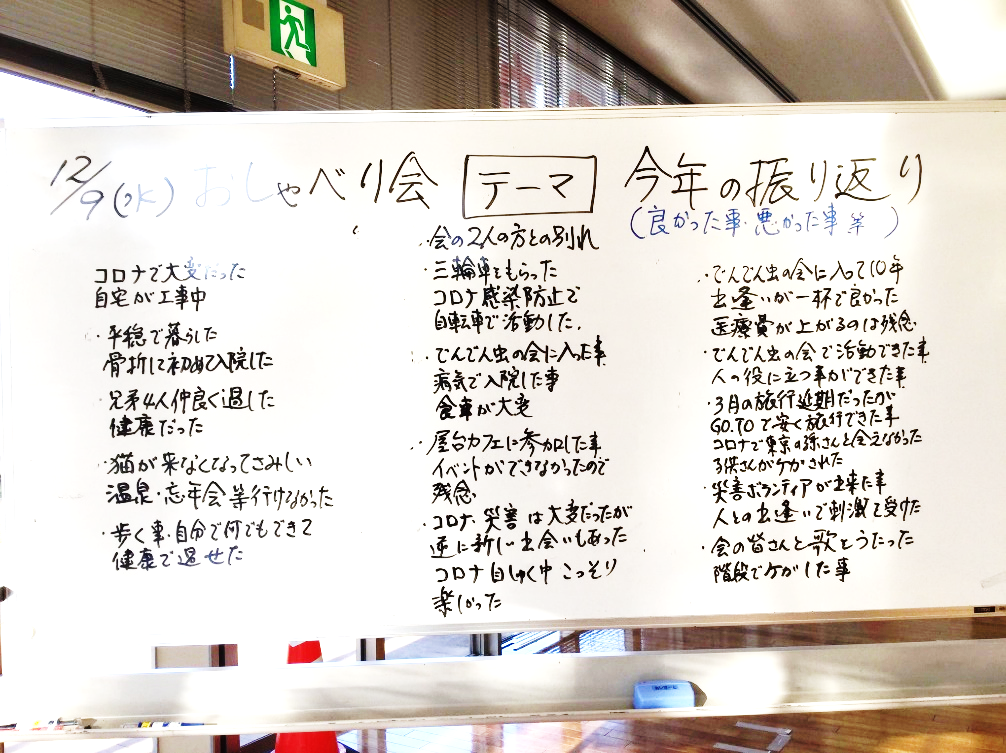 12/9(水) おしゃべり会 テーマ 今年の振り返り
(良かった事・悪かった事 等)
コロナで大変だった
自宅が工事中
・平穏で暮らした
骨折して初めて入院した
・兄弟4人仲良く過した
健康だった
・猫が来なくなってさみしい
温泉・忘年会等行けなかった
・歩く事・自分で何でもできて
健康で過せた
・会の2人の方との別れ
・三輪車をもらった
コロナ感染防止で
自転車で活動した.
・でんでん虫の会に入った事
病気で入院した事
食事が大変
・屋台カフェに参加した事
イベントができなかったので
残念
・コロナ・災害は大変だったが
逆に新しい出会いもあった
コロナ自しゅく中 こっそり
楽しかった
・でんでん虫の会に入って10年
出逢いが一杯で良かった
医療費が上がるのは残念
・でんでん虫の会で活動できた事
人の役に立つ事ができた事
・3月の旅行延期だったが
GO.TOで安く旅行できた事
コロナで東京の孫さんと会えなかった
子供さんがケガされた
・災害ボランティアが出来た事
人との出逢いで刺激を受けた
・会の皆さんと歌をうたった
階段でケガした事